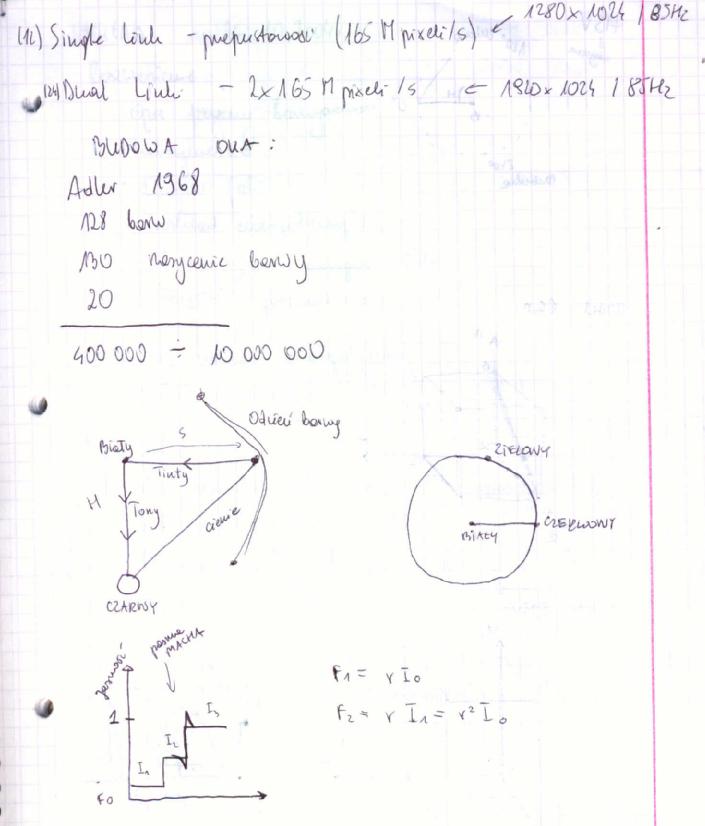 (12) Single Link - przepustowość (165 M pixeli/s) ← 1280x1024 / 85Hz
(24) Dual Link - 2x165 M pixeli/s ← 1920x1024 / 85Hz
BUDOWA OKA:
Adler 1968
128 barw
130 nasycenie barwy
20
400 000 ÷ 10 000 000
Odcień barwy
S
Biały
Tinty
H
Tony
cienie
CZARNY
ZIELONY
BIAŁY
CZERWONY
pasma
MACHA
Jasność
1
I₃
I₂
I₁
F0
F₁ = r I₀
F₂ = r I₁ = r² I₀